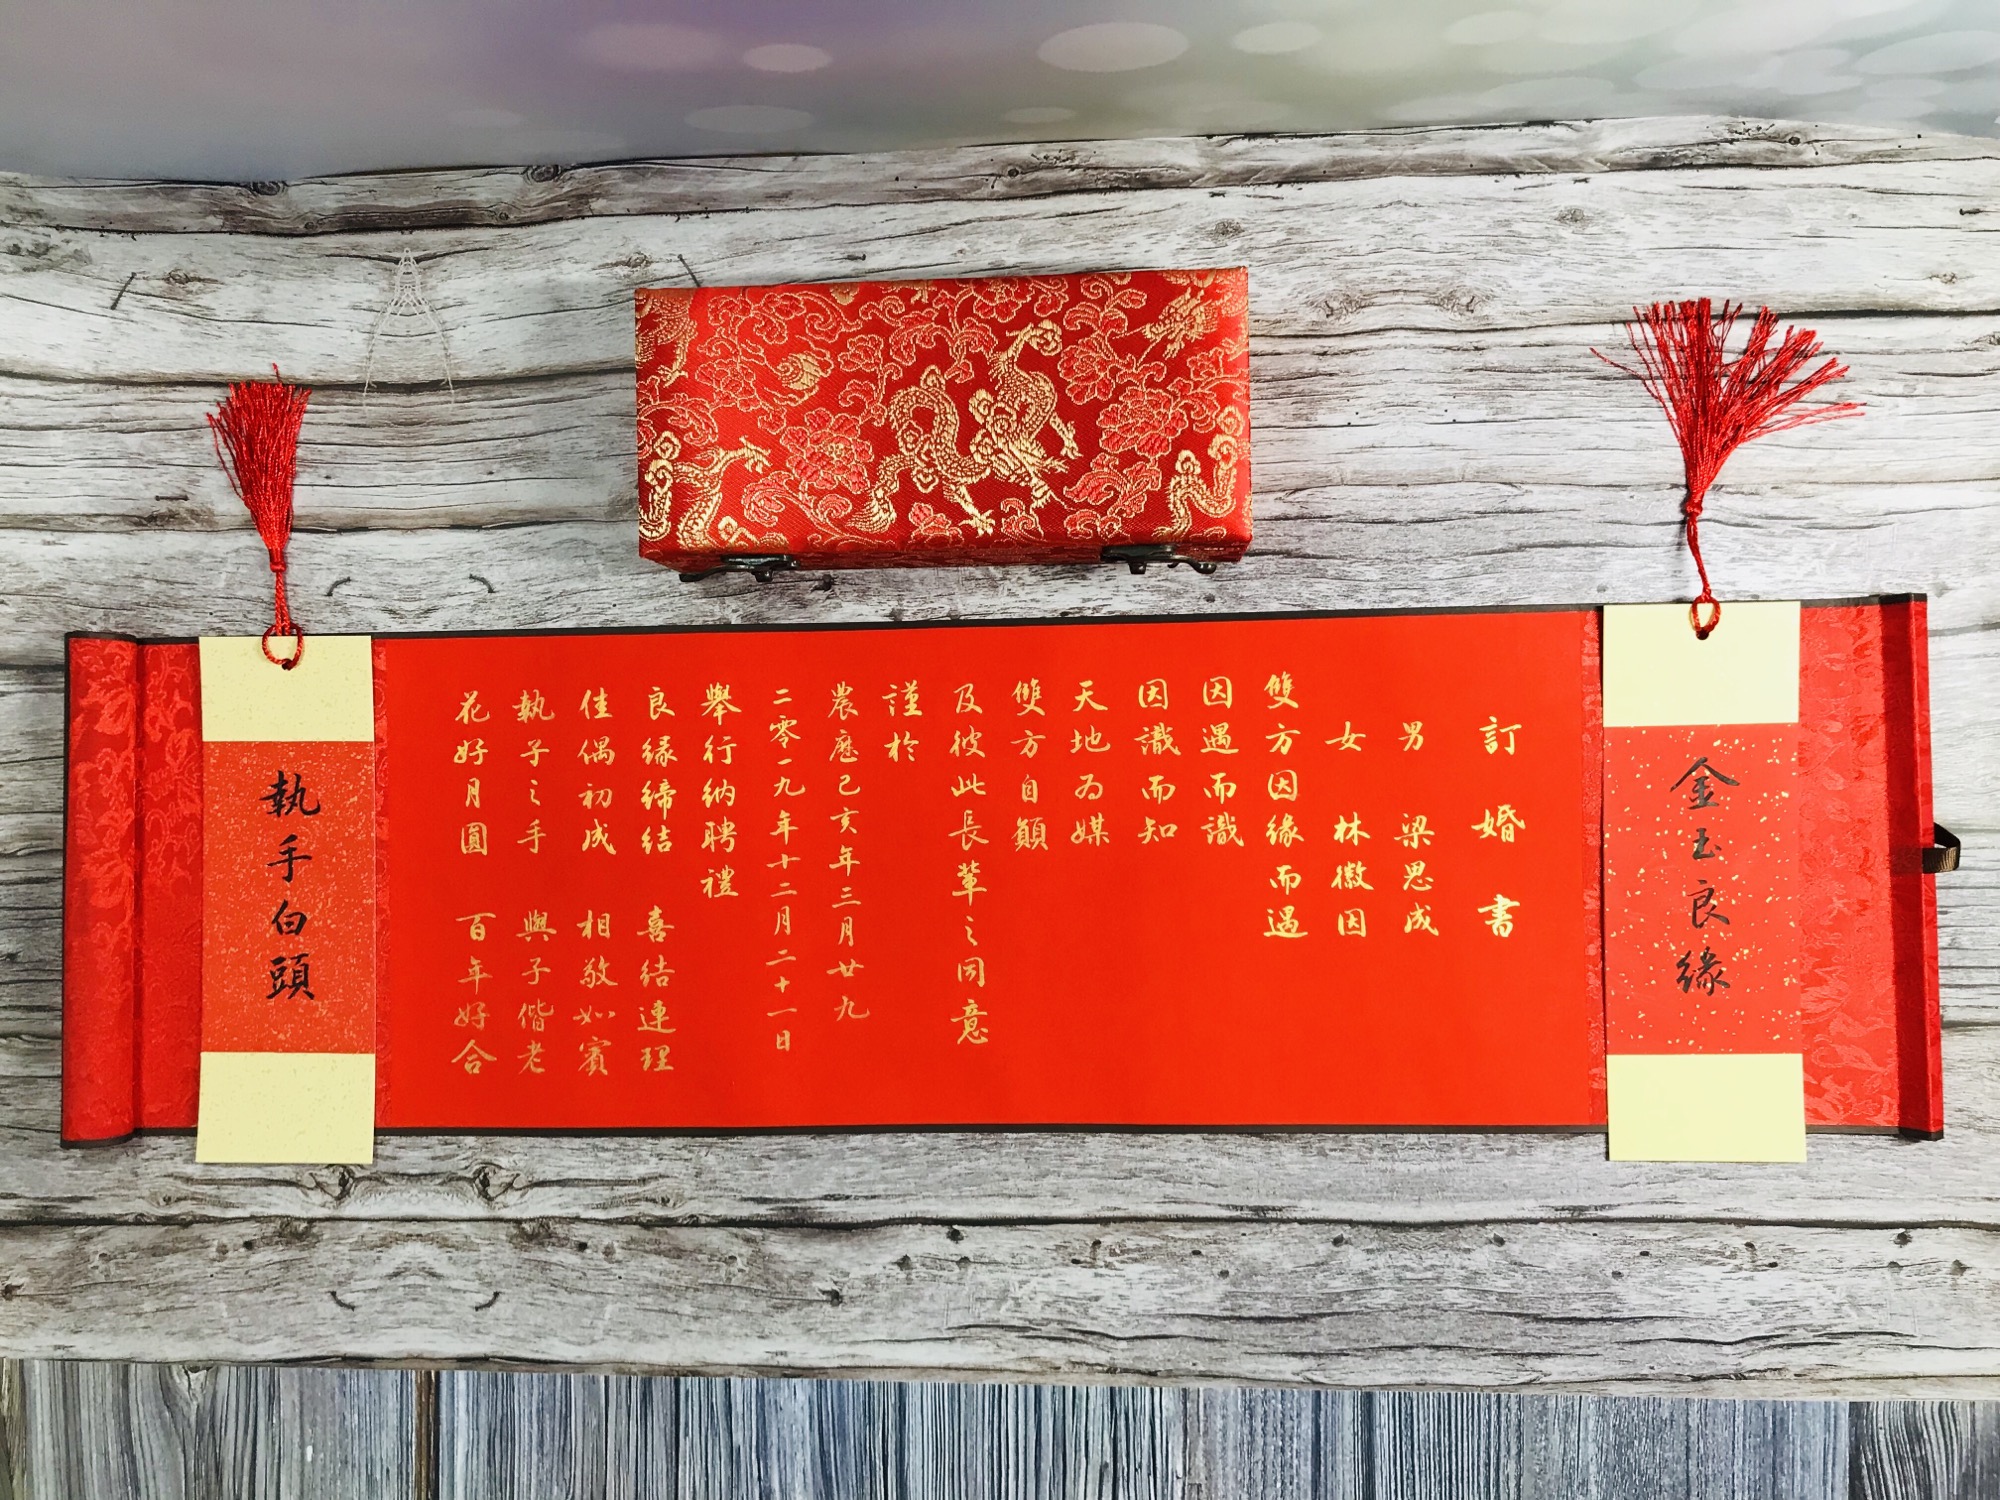 金玉良緣
訂婚書
男 梁思成
女 林徽因
雙方因緣而遇
因遇而識
因識而知
天地为媒
雙方自願
及彼此長輩之同意
謹於
農歷己亥年三月廿九
二零一九年十二月二十一日
舉行納聘禮
良缘締结 喜结連理
佳偶初成 相敬如賓
執子之手 與子偕老
花好月圓 百年好合
執手白頭